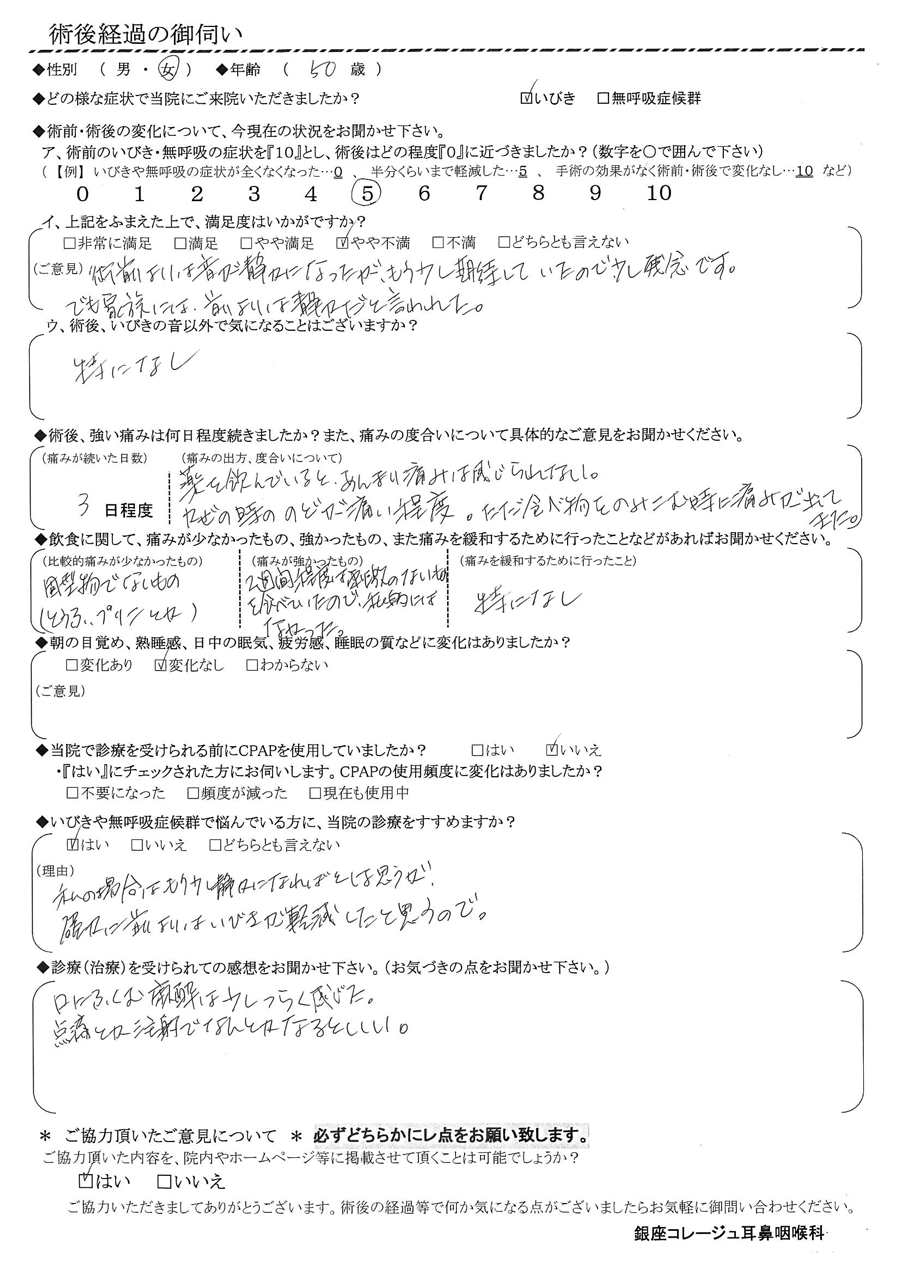 術後経過の御伺い
◆性別 ( 男 ・ 女 ) ◆年齢 ( 50 歳 )
◆どの様な症状で当院にご来院いただきましたか? ☑いびき □無呼吸症候群
◆術前・術後の変化について、今現在の状況をお聞かせ下さい。
ア、術前のいびき・無呼吸の症状を『10』とし、術後はどの程度『0』に近づきましたか?(数字を〇で囲んで下さい)
(【例】いびきや無呼吸の症状が全くなくなった…0 、 半分くらいまで軽減した…5 、 手術の効果がなく術前・術後で変化なし…10 など)
0 1 2 3 4 5 6 7 8 9 10
イ、上記をふまえた上で、満足度はいかがですか?
□非常に満足 □満足 □やや満足 ☑やや不満 □不満 □どちらとも言えない
(ご意見) 術前よりは音が静かになったが、もう少し期待していたので少し残念です。
でも家族には、前よりは静かだと言われた。
ウ、術後、いびきの音以外で気になることはございますか?
特になし
◆術後、強い痛みは何日程度続きましたか?また、痛みの度合いについて具体的なご意見をお聞かせください。
(痛みが続いた日数) (痛みの出方、度合いについて)
薬を飲んでいると、あんまり痛みは感じられなし。
3 日程度 カゼの時ののどが痛い程度。ただ食べ物をのみこむ時に痛みが出て
きた。
◆飲食に関して、痛みが少なかったもの、強かったもの、また痛みを緩和するために行ったことなどがあればお聞かせください。
(比較的痛みが少なかったもの) (痛みが強かったもの) (痛みを緩和するために行ったこと)
固型物でないもの
(とうふ、プリンとか)
2週間程度は刺激のないもの
を食べていたので、私的には
なかった。
特になし
◆朝の目覚め、熟睡感、日中の眠気、疲労感、睡眠の質などに変化はありましたか?
□変化あり ☑変化なし □わからない
(ご意見)
◆当院で診療を受けられる前にCPAPを使用していましたか? □はい ☑いいえ
・『はい』にチェックされた方にお伺いします。CPAPの使用頻度に変化はありましたか?
□不要になった □頻度が減った □現在も使用中
◆いびきや無呼吸症候群で悩んでいる方に、当院の診療をすすめますか?
☑はい □いいえ □どちらとも言えない
(理由)
私の場合はもう少し静かになればとは思うが、
確かに前よりはいびきが軽減したと思うので。
◆診療(治療)を受けられての感想をお聞かせ下さい。(お気づきの点をお聞かせ下さい。)
口にふくむ麻酔は少しつらく感じた。
点滴とか注射でなんとかなるとしいい。
＊ ご協力頂いたご意見について ＊ 必ずどちらかにレ点をお願い致します。
ご協力頂いた内容を、院内やホームページ等に掲載させて頂くことは可能でしょうか?
☑はい □いいえ
ご協力いただきましてありがとうございます。術後の経過等で何か気になる点がございましたらお気軽に御問い合わせください。
銀座コレージュ耳鼻咽喉科